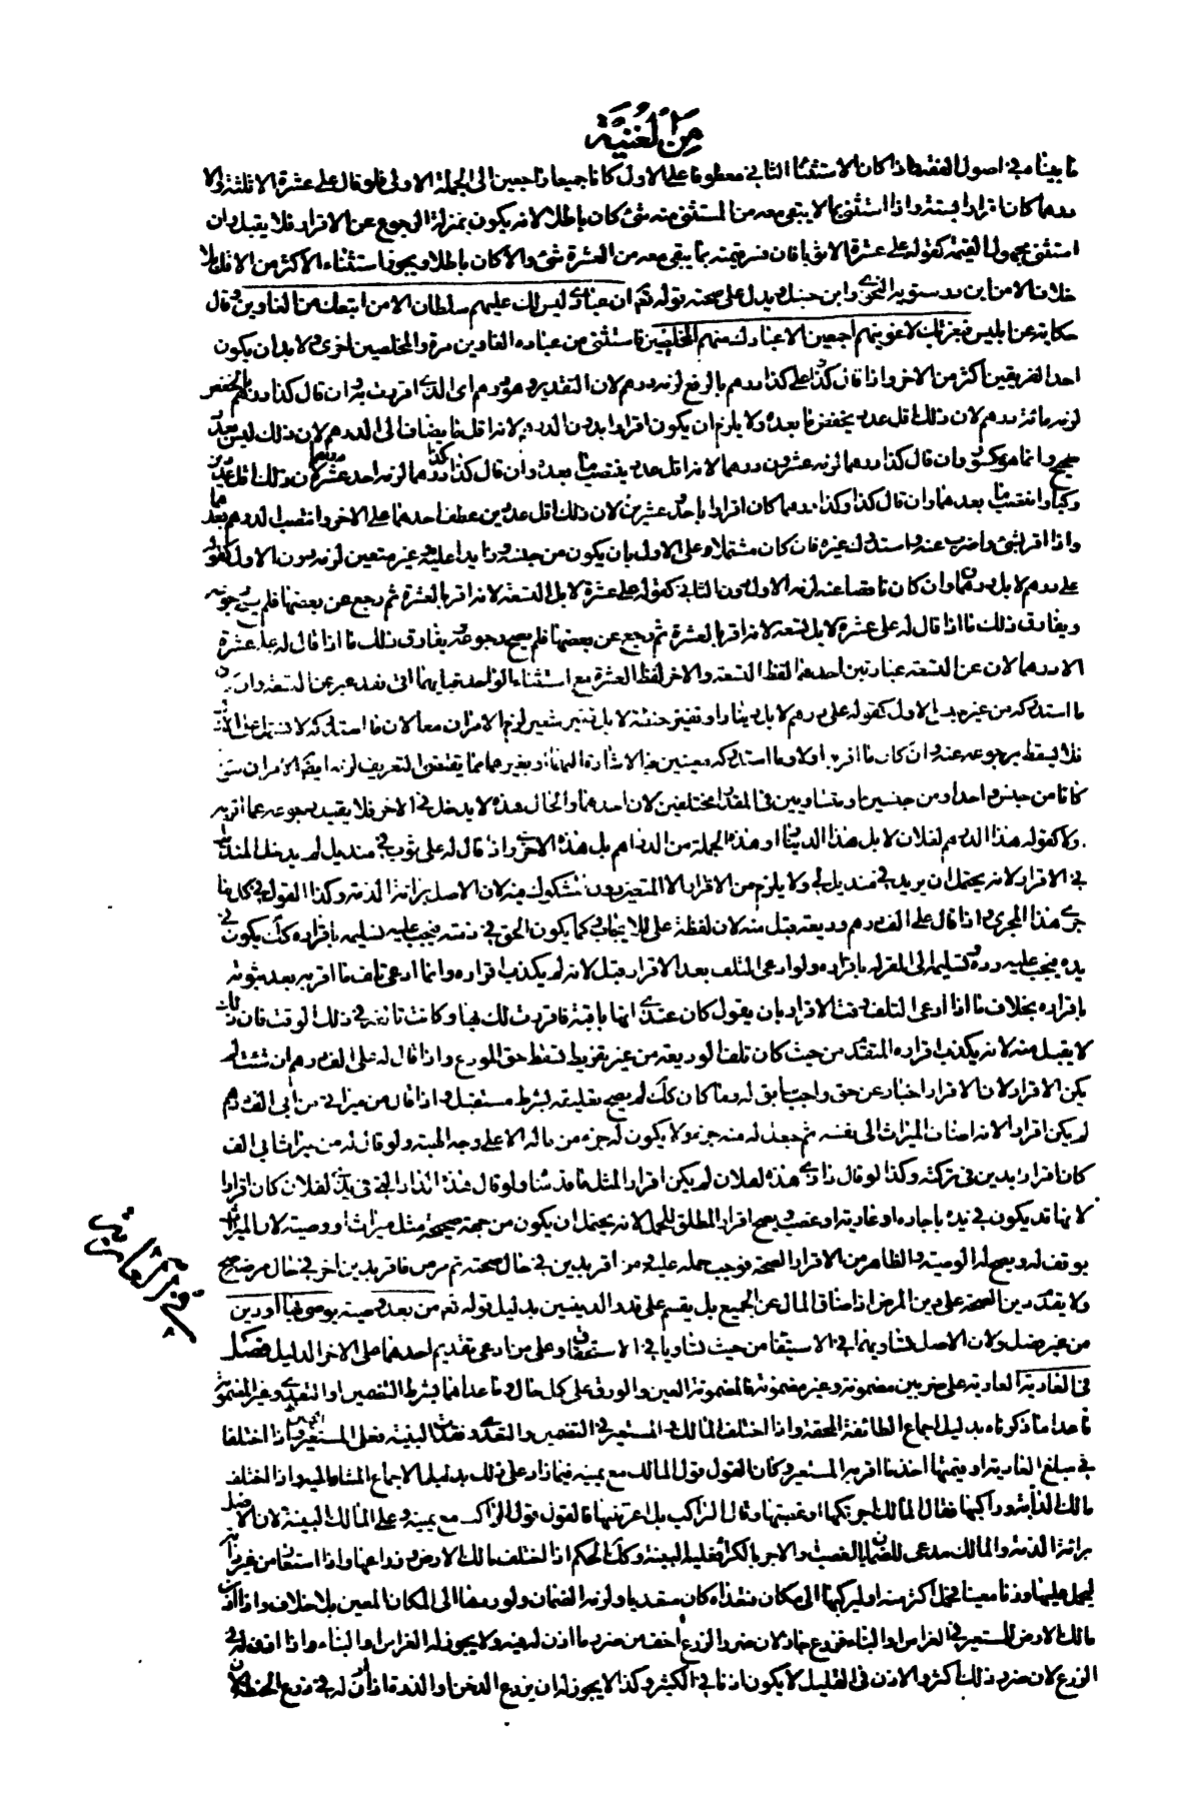 من الغنية
ما بيناه في اصول الفقه فاذا كان الاستثناء الثاني معطوفا على الاول كانا جميعا راجعين الى الجملة الاولى فلو قال علي عشرة الا ثلثة والا
درهما كان اقرارا بستة واذا استثنى بما لا يبقى معه من المستثنى منه شئ كان باطلا لانه يكون بمنزلة الرجوع عن الاقرار فلا يقبل وان
استثنى بمجهول القيمة كقوله علي عشرة الا ثوبا فان فسر قيمته بما يبقى معه من العشرة شئ والا كان باطلا ويجوز استثناء الاكثر من الاقل بلا
خلاف الا من ابن درستويه النحوي وابن حنبل ويدل على صحته قوله تعم ان عبادي ليس لك عليهم سلطان الا من اتبعك من الغاوين وقال
حكاية عن ابليس فبعزتك لاغوينهم اجمعين الا عبادك منهم المخلصين فاستثنى من عباده الغاوين مرة والمخلصين اخرى ولا بد ان يكون
احد الفريقين اكثر من الاخر واذا قال كذا علي كذا درهم بالرفع لزمه درهم لان التقدير وهو درهم اي الذي اقررت به وان قال كذا درهم بالخفض
لزمه مائة درهم لان ذلك اقل عدد يخفض ما بعده ولا يلزم ان يكون اقرارا بدون الدرهم لانه اقل ما يضاف الى الدرهم لان ذلك ليس بعدد
صحيح وانما هو كسور وان قال كذا درهما لزمه عشرون درهما لانه اقل عدد ينتصب ما بعده وان قال كذا كذا درهما لزمه احد عشر درهما لان ذلك اقل عددين
ركبا وانتصب ما بعدهما وان قال كذا وكذا درهما كان اقرارا باحد وعشرين لان ذلك اقل عددين عطف احدهما على الاخر وانتصب الدرهم بعدهما
واذا اقر بشئ واضرب عنه واستدرك غيره فان كان مشتملا على الاول بان يكون من جنسه وزايدا عليه وغير متعين لزمه دون الاول كقوله
علي درهم لا بل درهمان وان كان ناقصا عنه لزمه الاول دون الثاني كقوله علي عشرة لا بل تسعة لانه اقر بالعشرة ثم رجع عن بعضها فلم يصح رجوعه
ويفارق ذلك ما اذا قال له علي عشرة لا بل تسعة لانه اقر بالعشرة ثم رجع عن بعضها فلم يصح رجوعه يفارق ذلك ما اذا قال له علي عشرة
الا درهما لان عن التسعة عبارتين احدهما لفظ التسعة والاخر لفظ العشرة مع استثناء الواحد فبايهما اتى فقد عبر عن التسعة وان كان
ما استدركه من غير جنس الاول كقوله علي درهم لا بل دينار او قفيز حنطة لا بل قفيز شعير لزمه الامران معا لان ما استدركه لا يشتمل على الاول
فلا يسقط برجوعه عنه وان كان ما اقر به اولا وما استدركه معينين بالاشارة اليهما او بغيرها مما يقتضي التعريف لزمه ايضا الامران سواء
كانا من جنس واحد او من جنسين او متساويين في المقدار او مختلفين لان احدهما والحال هذه لا يدخل في الاخر فلا يفيد رجوعه عما اقر به
اولا كقوله هذا الدرهم لفلان لا بل هذا الدينار او هذه الجملة من الدراهم بل هذه الاخرى واذا قال له علي ثوب في منديل لم يدخل المنديل
في الاقرار لانه يحتمل ان يريد في منديل لي ولا يلزم من الاقرار الا المتيقن دون المشكوك فيه لان الاصل براءة الذمة وكذا القول في كل ما
جرى هذا المجرى واذا قال علي الف درهم وديعة قبل منه لان لفظة علي للايجاب وكما يكون الحق في ذمته فيجب عليه تسليمه باقراره كذلك يكون في
يده فيجب عليه رده وتسليمه الى المقر له باقراره ولو ادعى التلف بعد الاقرار قبل لانه لم يكذب اقراره وانما ادعى تلف ما اقر به بعد ثبوته
باقراره بخلاف ما اذا ادعى التلف وقت الاقرار بان يقول كان عندي انها باقية فاقررت لك بها وكانت تالفة في ذلك الوقت فان ذلك
لا يقبل منه لانه يكذب اقراره المتقدم من حيث كان تلف الوديعة من غير تفريط فسقط حق المودع واذا قال له علي الف درهم ان شئت لم
يكن اقرارا لان الاقرار اخبار عن حق واجب سابق له وما كان كذلك لم يصح تعليقه بشرط مستقبل واذا قال من ميراثي من ابي الف درهم
لم يكن اقرارا لانه اضاف الميراث الى نفسه ثم جعل له منه جزءا ولا يكون له جزء من ماله الا على وجه الهبة ولو قال له من ميراث ابي الف
كان اقرارا بدين في تركته وكذا لو قال داري هذه لفلان لم يكن اقرارا لمثل ما قدمناه ولو قال هذه الدار التي في يدي لفلان كان اقرارا
لانها قد يكون في يده باجارة او عارية او غصب ويصح اقرار المطلق للحمل لانه يحتمل ان يكون من جهة صحيحة مثل ميراث او وصية لان الميراث
يوقف له ويصح له الوصية والظاهر من الاقرار الصحة فوجب حمله عليه ومن اقر بدين في حال صحته ثم مرض فاقر بدين اخر في حال مرضه صح
ولا يقدم دين الصحة على دين المرض اذا ضاق المال عن الجميع بل يقسم على قدر الدينين بدليل قوله تعم من بعد وصية يوصي بها او دين
من غير فصل ولان الاصل تساويهما في الاستيفاء من حيث تساويا في الاستحقاق وعلى من ادعى تقديم احدهما على الاخر الدليل فصل
في العارية العارية على ضربين مضمونة وغير مضمونة فالمضمونة العين والورق على كل حال وما عداهما بشرط التضمين او التعدي وغير المضمونة
ما عدا ما ذكرناه بدليل اجماع الطائفة المحقة واذا اختلف المالك والمستعير في التضمين والتعدي وفقدت البينة فعلى المستعير اليمين واذا اختلفا
في مبلغ العارية او قيمتها اخذ ما اقر به المستعير وكان القول قول المالك مع يمينه فيما زاد على ذلك بدليل الاجماع المشار اليه واذا اختلف
مالك الدابة وراكبها فقال المالك اجرتكها او غصبتها وقال الراكب بل اعرتنيها فالقول قول الراكب مع يمينه وعلى المالك البينة لان الاصل
براءة الذمة والمالك مدعي للضمان بالغصب والاجر بالكراء فعليه البينة وكذلك الحكم اذا اختلف مالك الارض وزراعها واذا استعار من غيره دابة
ليحمل عليها وزنا معينا فحمل اكثر منه او ليركبها الى مكان فتعداه كان متعديا ولزمه الضمان ولو ردها الى المكان المعين بلا خلاف واذا اذن
مالك الارض للمستعير في الغراس والبناء فزرع جاز لان ضرر الزرع اخف من ضرر ما اذن له فيه ولا يجوز له الغراس والبناء واذا اذن له في
الزرع لان ضرر ذلك اكثر والاذن في القليل لا يكون اذنا في الكثير وكذا لا يجوز له ان يزرع الدخن او الذرة اذا اذن له في زرع الحنطة لان
في العارية